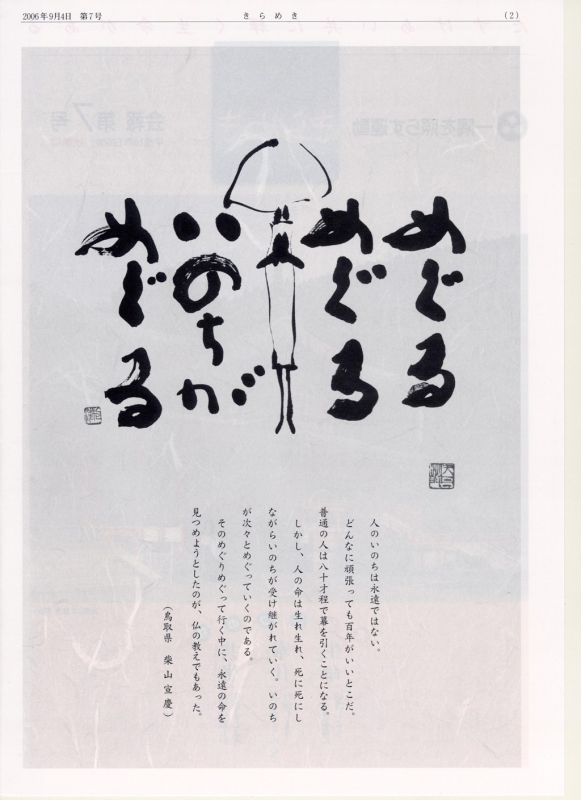 2006年9月4日 第7号
きらめき
(2)
めぐる
めぐる
いのちが
めぐる
人のいのちは永遠ではない。
どんなに頑張っても百年がいいとこだ。
普通の人は八十才程で幕を引くことになる。
しかし、人の命は生れ生れ、死に死にし
ながらいのちが受け継がれていく。いのち
が次々とめぐっていくのである。
そのめぐりめぐって行く中に、永遠の命を
見つめようとしたのが、仏の教えでもあった。
(鳥取県 柴山宣慶)